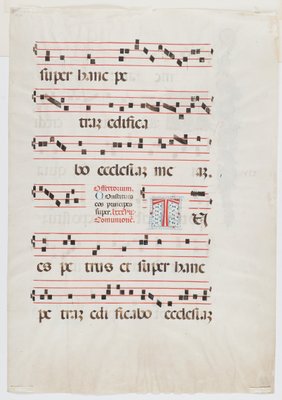 super hanc pe
traz edifica
bo ecclesiaz me az.
Offertorium.
Constitues
eos principes
super.
Comunione.
T El
es petrus et super hanc
pe traz edi ficabo ecclesiaz